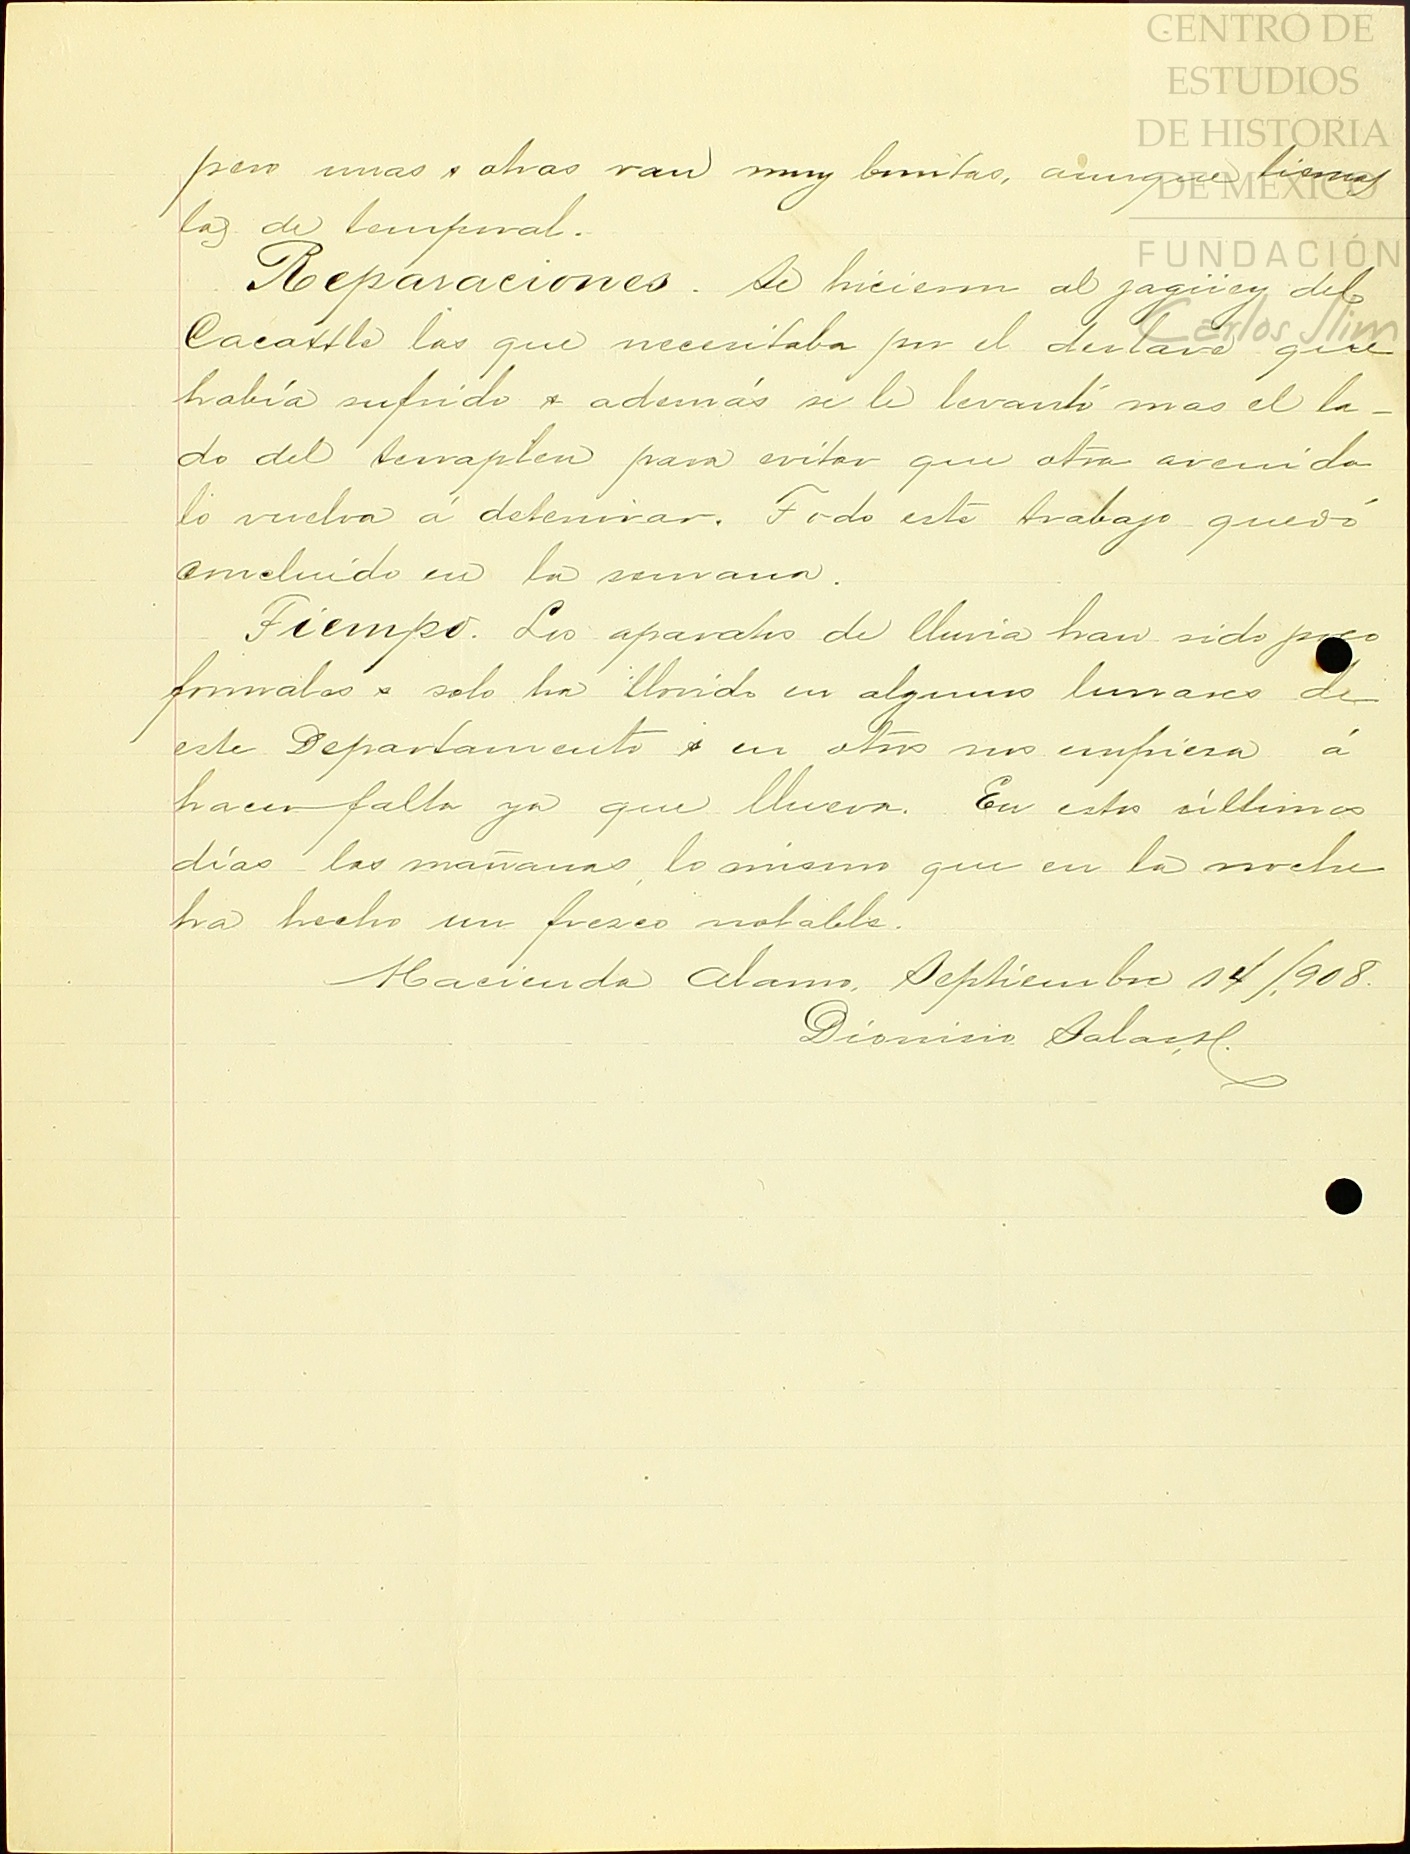 CENTRO DE
ESTUDIOS
DE HISTORIA
DE MÉXICO
FUNDACIÓN
Carlos Slim
pero unas & otras van muy bonitas, aunque tiernas
las de temporal.
Reparaciones. Se hicieron al jagüey del
Cacaxtle las que necesitaba por el deslave que
había sufrido & además se le levantó mas el la-
do del terraplen para evitar que otra avenida
lo vuelva á deteriorar. Todo este trabajo quedó
concluido en la semana.
Tiempo. Los aparatos de lluvia han sido poco
formales & solo ha llovido en algunos lunares de
este Departamento & en otros nos empieza á
hacer falta ya que llueva. En estos últimos
días las mañanas, lo mismo que en la noche
ha hecho un fresco notable.
Hacienda Alamo, Septiembre 14/908.
Dionisio Salas,